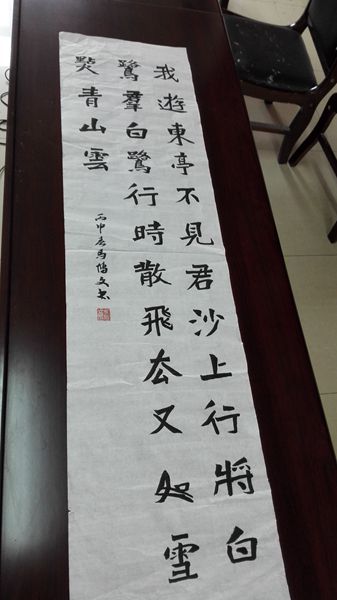 我遊東亭不見君沙上行將白
鷺羣白鷺行時散飛去又如雪
點青山雲
丙申春馬文書